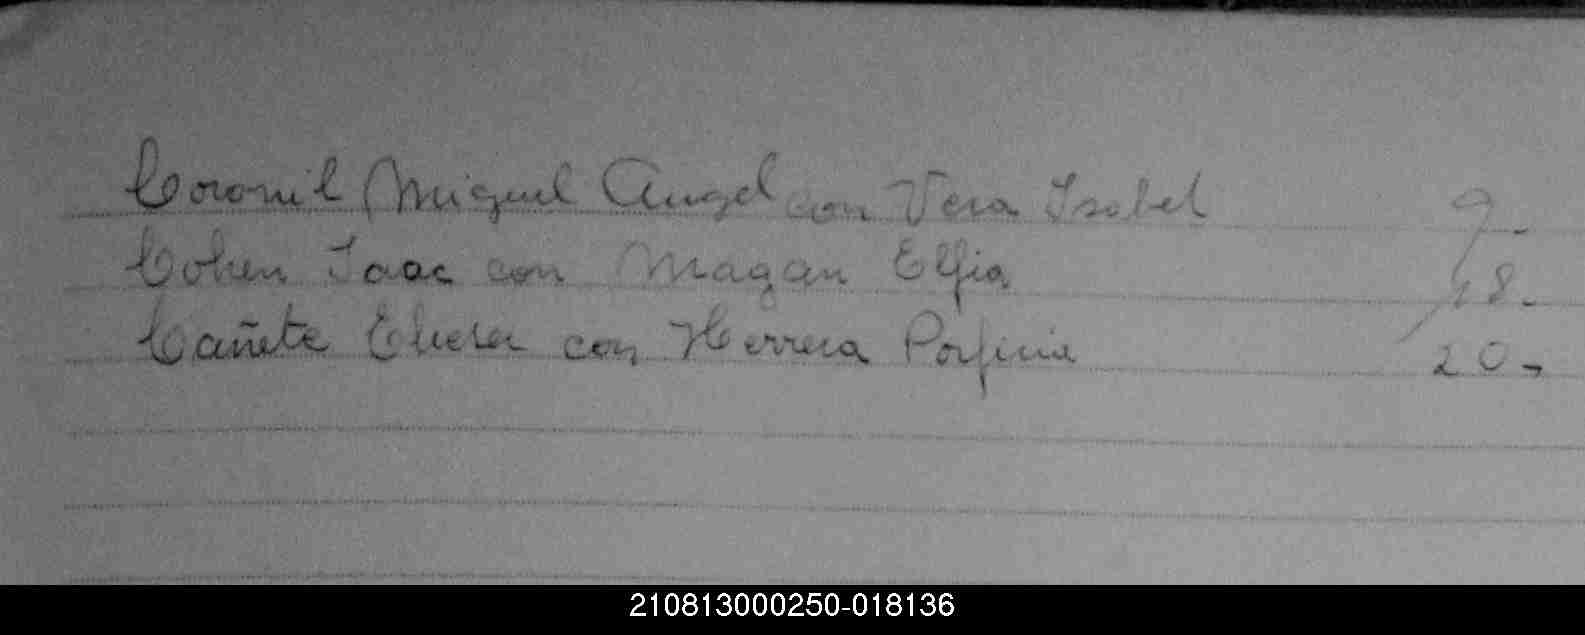 Coronil Miguel Angel con Vera Isabel 9.-
Cohen Isaac con Magan Elfia 18.-
Cañete Elieser con Herrera Porfiria 20.-
210813000250-018136